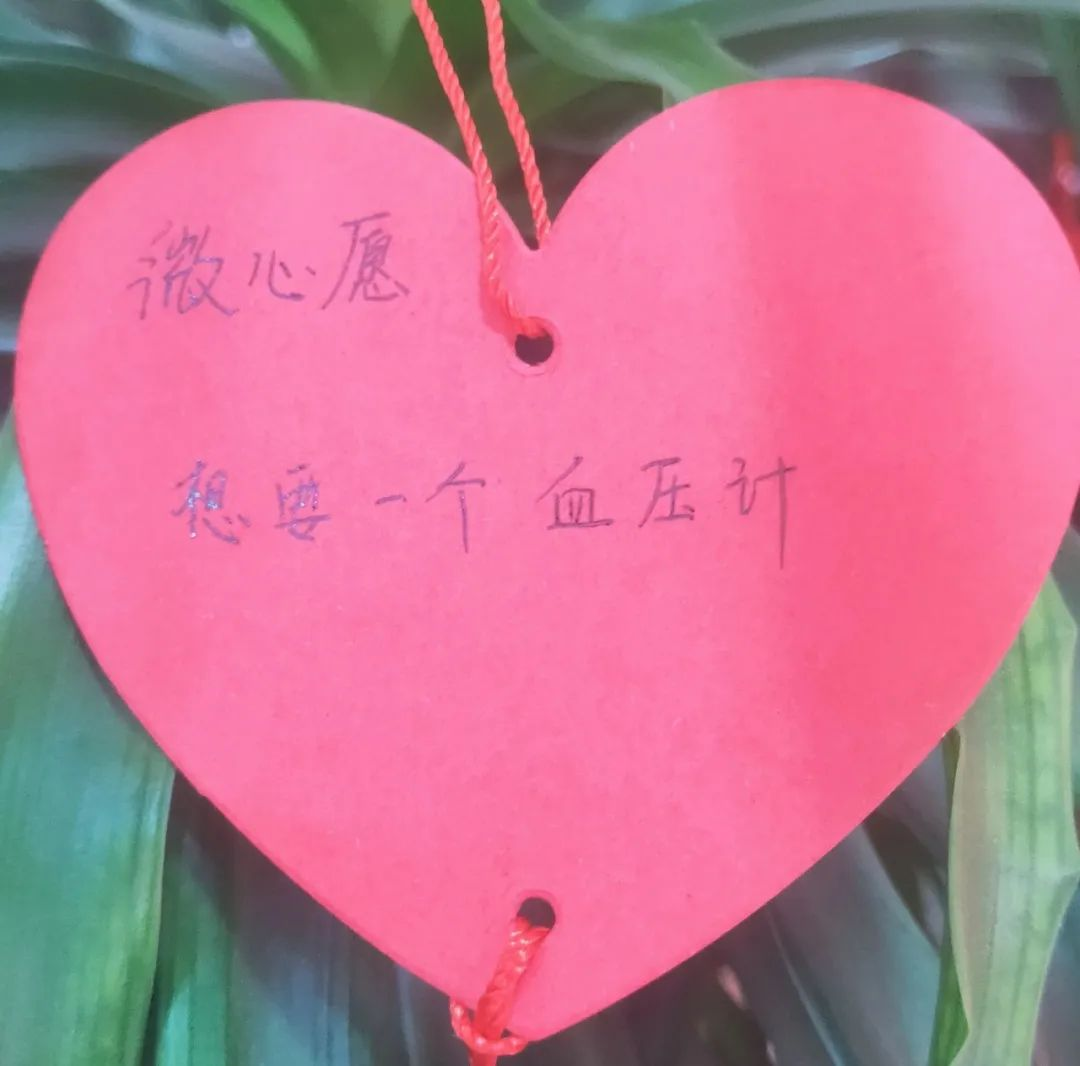 微心愿
想要一个血压计